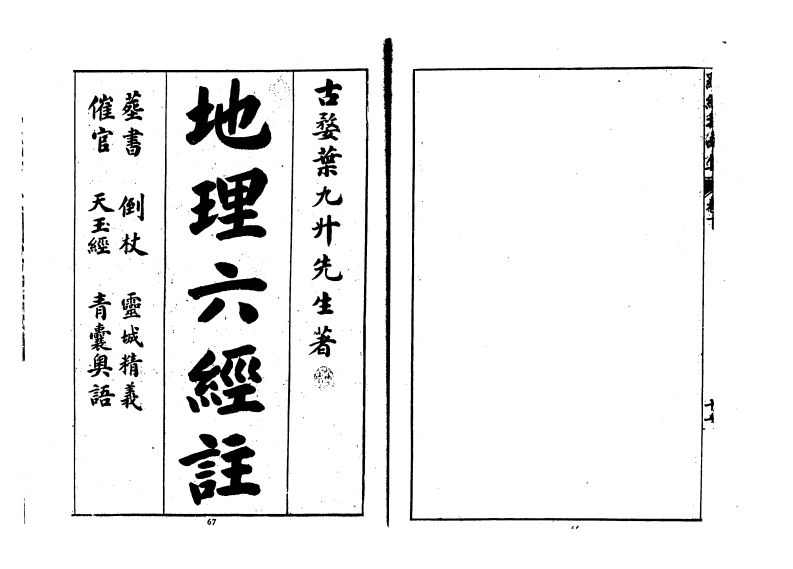 古婺葉九升先生著
地理六經註
葬書 倒杖 靈城精義
催官 天玉經 青囊奥語
67